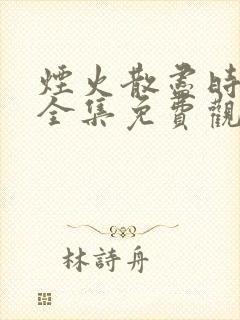 煙火散盡時
全集免費觀
林詩舟